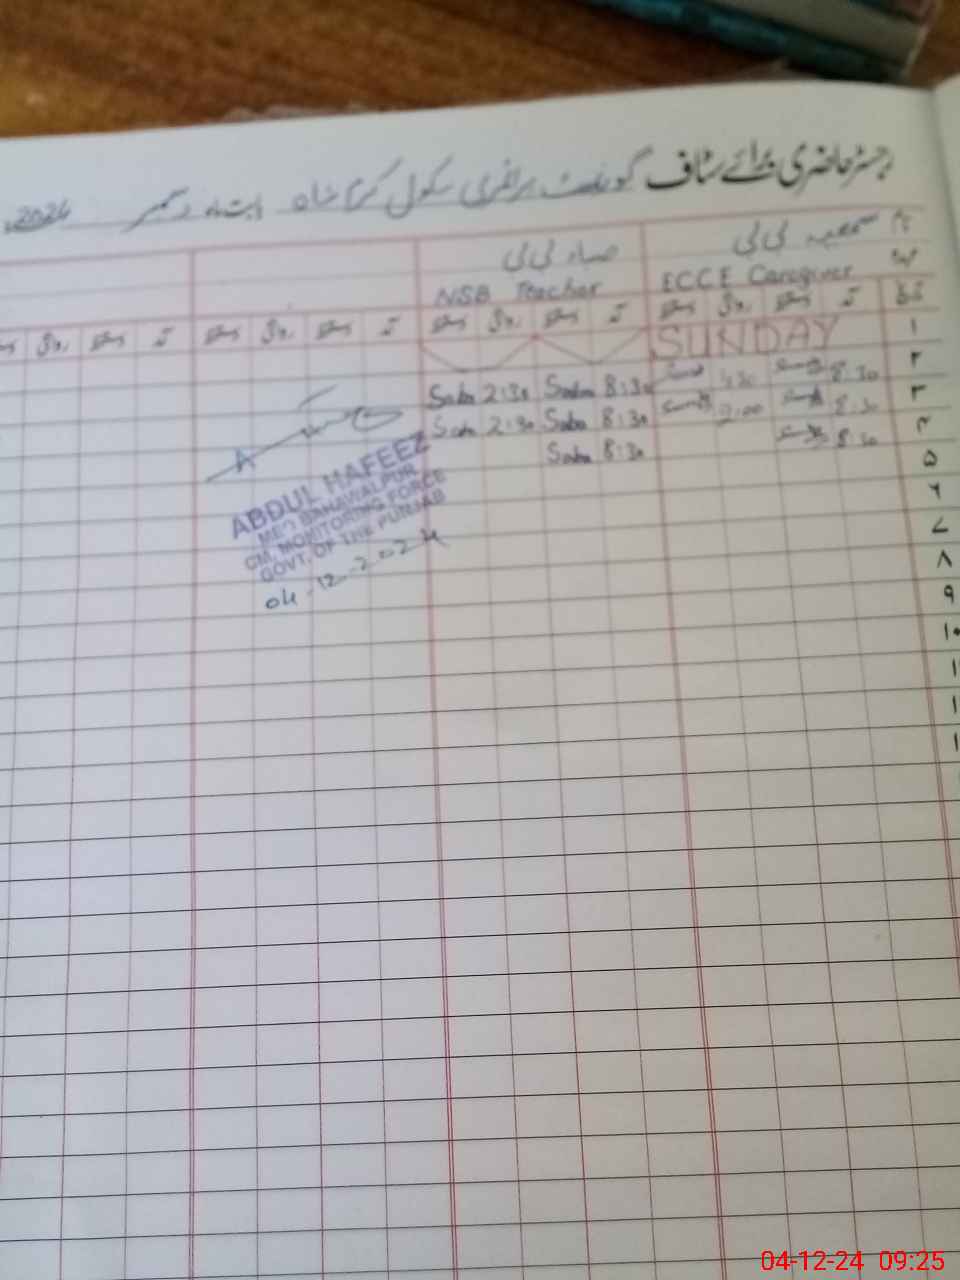 رجسٹر حاضری برائے سٹاف گورنمنٹ پرائمری سکول کرم شاہ بابت ماہ دسمبر 2024ء
نام بی بی صباء بی بی
عہدہ ECCE Caregiver NSB Teacher
تاریخ آمد دستخط روانگی دستخط آمد دستخط روانگی دستخط آمد دستخط روانگی دستخط آمد دستخط روانگی
۱ SUNDAY
۲ 8:30 1:30 8:30 Saba 2:30 Saba
۳ 8:30 2:00 8:30 Saba 2:30 Saba
۴ 8:30 8:30 Saba
۵
۶
۷
۸
۹
۱۰
ABDUL HAFEEZ
BAHAWALPUR
CM, MONITORING FORCE
GOVT. OF THE PUNJAB
04-12-2024
04-12-24 09:25